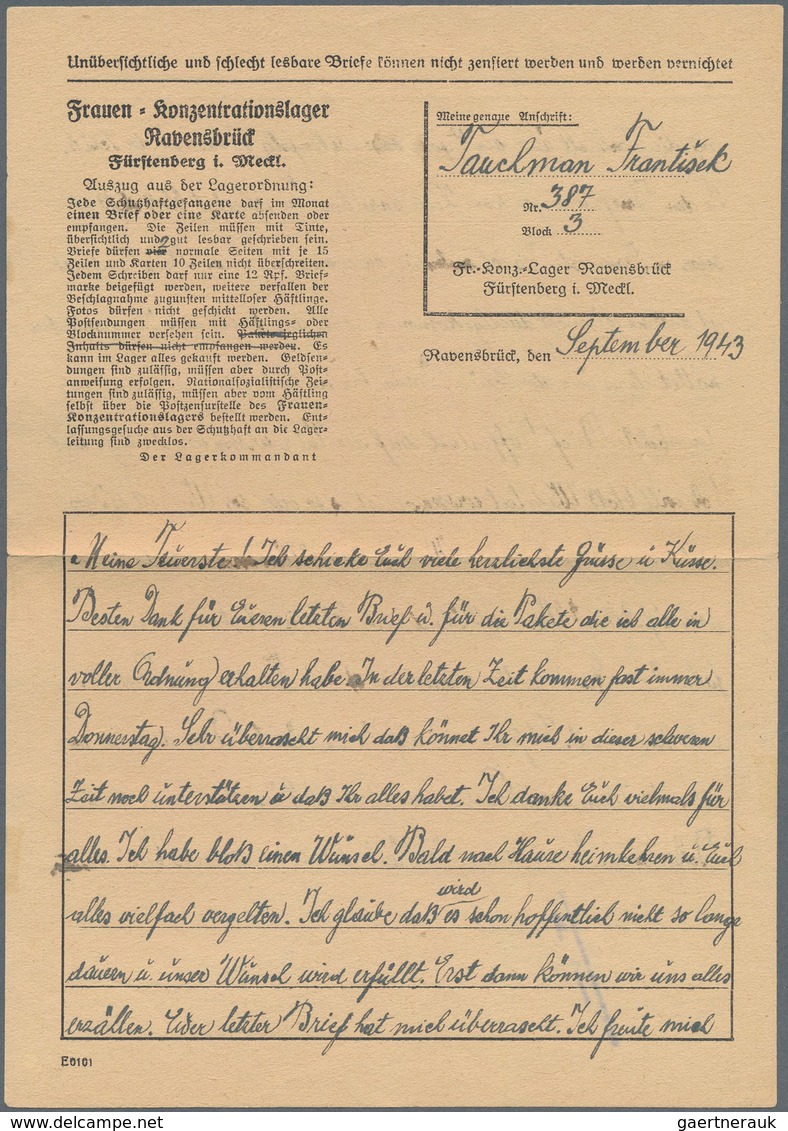 Unübersichtliche und schlecht lesbare Briefe können nicht zensiert werden und werden vernichtet
Frauen-Konzentrationslager
Ravensbrück
Fürstenberg i. Meckl.
Auszug aus der Lagerordnung:
Jede Schutzhaftgefangene darf im Monat
einen Brief oder eine Karte absenden oder
empfangen. Die Zeilen müssen mit Tinte,
übersichtlich und gut lesbar geschrieben sein.
Briefe dürfen vier 2 normale Seiten mit je 15
Zeilen und Karten 10 Zeilen nicht überschreiten.
Jedem Schreiben darf nur eine 12 Rpf. Brief-
marke beigefügt werden, weitere verfallen der
Beschlagnahme zugunsten mittelloser Häftlinge.
Fotos dürfen nicht geschickt werden. Alle
Postsendungen müssen mit Häftlings- oder
Blocknummer versehen sein. Pakete jeglichen
Inhalts dürfen nicht empfangen werden. Es
kann im Lager alles gekauft werden. Geldsen-
dungen sind zulässig, müssen aber durch Post-
anweisung erfolgen. Nationalsozialistische Zei-
tungen sind zulässig, müssen aber vom Häftling
selbst über die Postzensurstelle des Frauen-
Konzentrationslagers bestellt werden. Ent-
lassungsgesuche aus der Schutzhaft an die Lager-
leitung sind zwecklos.
Der Lagerkommandant
Meine genaue Anschrift:
Tauchman František
Nr. 387
Block 3
Fr.-Konz.-Lager Ravensbrück
Fürstenberg i. Meckl.
Ravensbrück, den September 1943
Meine Teuerste! Ich schicke Euch viele herzlichste Grüsse u Küsse.
Besten Dank für Eueren letzten Brief u. für die Pakete die ich alle in
voller Ordnung erhalten habe. In der letzten Zeit kommen fast immer
Donnerstag. Sehr überrascht mich daß könnet Ihr mich in dieser schweren
Zeit noch unterstützen u daß Ihr alles habet. Ich danke Euch vielmals für
alles. Ich habe bloß einen Wunsch. Bald nach Hause heimkehren u. Euch
alles vielfach vergelten. Ich glaube daß es wird schon hoffentlich nicht so lange
dauern u. unser Wunsch wird erfüllt. Erst dann können wir uns alles
erzällen. Euer letzter Brief hat mich überrascht. Ich freute mich
E0101
delcampe.net
gaertnerauk